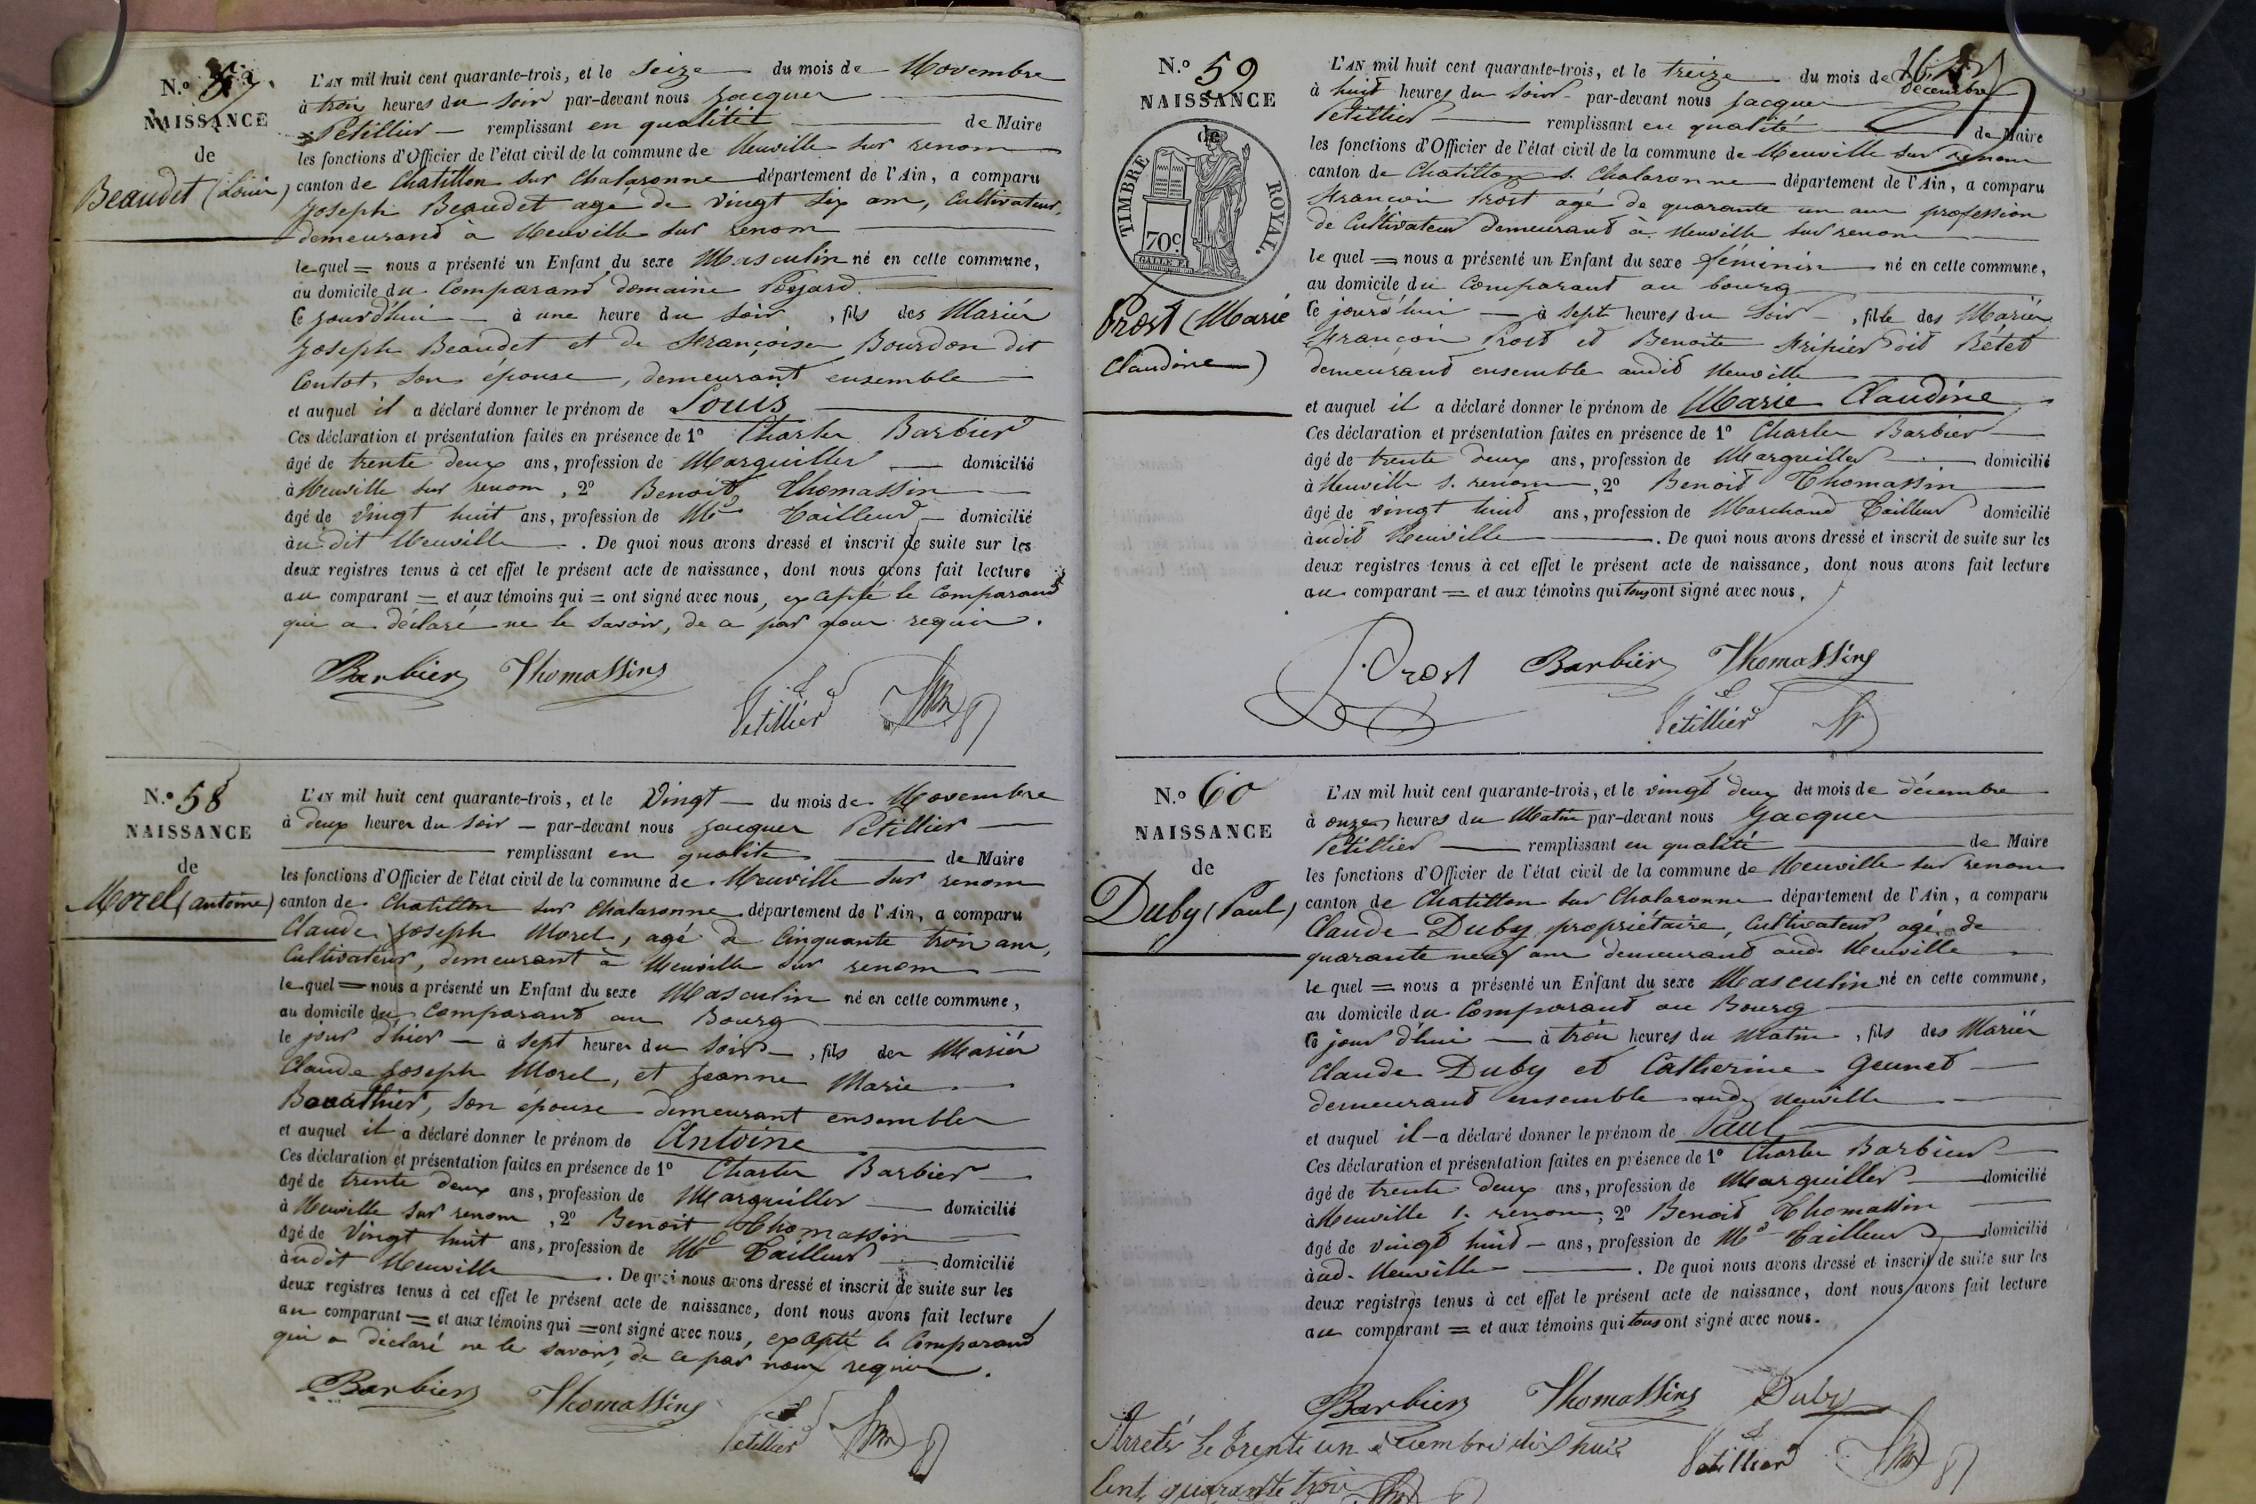 N.o 57
NAISSANCE
de
Beaudet (Louis)
L'AN mil huit cent quarante-trois, et le Seize du mois de Novembre
à trois heures du Soir par-devant nous Jacques
Petillier remplissant en qualité de Maire
les fonctions d'Officier de l'état civil de la commune de Neuville sur renom
canton de Chatillon sur Chalaronne département de l'Ain, a comparu
Joseph Beaudet agé de vingt six ans, Cultivateur,
demeurand à Neuville sur renom
le quel = nous a présenté un Enfant du sexe Masculin né en cette commune,
au domicile du Comparand domaine Poyard
Ce jourd'hui à une heure du Soir, fils des Mariés
Joseph Beaudet et de Françoise Bourdon dit
Coutot, son épouse, demeurant ensemble
et auquel il a déclaré donner le prénom de Louis
Ces déclaration et présentation faites en présence de 1o Charles Barbier
âgé de trente deux ans, profession de Marguiller domicilié
à Neuville sur renom, 2o Benoit Thomassin
âgé de vingt huit ans, profession de Md Tailleur domicilié
au dit Neuville. De quoi nous avons dressé et inscrit de suite sur les
deux registres tenus à cet effet le présent acte de naissance, dont nous avons fait lecture
au comparant = et aux témoins qui = ont signé avec nous, excepté le Comparand
qui a déclaré ne le savoir, de ce par nous requis.
Barbier Thomassin
Petillier
N.o 58
NAISSANCE
de
Morel (antoine)
L'AN mil huit cent quarante-trois, et le Vingt du mois de Novembre
à deux heures du Soir par-devant nous Jacques Petillier
remplissant en qualité de Maire
les fonctions d'Officier de l'état civil de la commune de Neuville sur renom
canton de Chatillon sur Chalaronne département de l'Ain, a comparu
Claude Joseph Morel, agé de Cinquante trois ans,
Cultivateur, demeurant à Neuville sur renom
le quel = nous a présenté un Enfant du sexe Masculin né en cette commune,
au domicile du Comparand au Bourg
le jour d'hier à sept heures du Soir, fils des Mariés
Claude Joseph Morel, et Jeanne Marie
Bouathier, son épouse demeurant ensemble
et auquel il a déclaré donner le prénom de Antoine
Ces déclaration et présentation faites en présence de 1o Charles Barbier
âgé de trente deux ans, profession de Marguiller domicilié
à Neuville sur renom, 2o Benoit Thomassin
âgé de Vingt huit ans, profession de Md Tailleur domicilié
au dit Neuville. De quoi nous avons dressé et inscrit de suite sur les
deux registres tenus à cet effet le présent acte de naissance, dont nous avons fait lecture
au comparant = et aux témoins qui = ont signé avec nous, excepté le Comparand
qui a déclaré ne le savoir, de ce par nous requis.
Barbier Thomassin
Petillier
N.o 59
NAISSANCE
de
TIMBRE ROYAL.
70c
Prost (Marie
Claudine)
L'AN mil huit cent quarante-trois, et le treize du mois de décembre
à huit heures du Soir par-devant nous Jacques
Petillier remplissant en qualité de Maire
les fonctions d'Officier de l'état civil de la commune de Neuville sur renom
canton de Chatillon s. Chalaronne département de l'Ain, a comparu
François Prost agé de quarante un ans profession
de Cultivateur demeurant à Neuville sur renom
le quel = nous a présenté un Enfant du sexe féminin né en cette commune,
au domicile du Comparant au bourg
Ce jourd'hui à sept heures du Soir, fille des Mariés
François Prost et Benoite Fripier dit Rétet
demeurand ensemble audit Neuville
et auquel il a déclaré donner le prénom de Marie Claudine
Ces déclaration et présentation faites en présence de 1o Charles Barbier
âgé de trente deux ans, profession de Marguiller domicilié
à Neuville s. renom, 2o Benoit Thomassin
âgé de vingt huit ans, profession de Marchand Tailleur domicilié
audit Neuville. De quoi nous avons dressé et inscrit de suite sur les
deux registres tenus à cet effet le présent acte de naissance, dont nous avons fait lecture
au comparant = et aux témoins qui tous ont signé avec nous.
Prost Barbier Thomassin
Petillier
N.o 60
NAISSANCE
de
Duby (Paul)
L'AN mil huit cent quarante-trois, et le vingt deux du mois de décembre
à onze heures du Matin par-devant nous Jacques
Petillier remplissant en qualité de Maire
les fonctions d'Officier de l'état civil de la commune de Neuville sur renom
canton de Chatillon sur Chalaronne département de l'Ain, a comparu
Claude Duby, propriétaire, Cultivateur, agé de
quarante neuf ans demeurand aud. Neuville
le quel = nous a présenté un Enfant du sexe Masculin né en cette commune,
au domicile du Comparant au Bourg
Ce jour d'hui à trois heures du Matin, fils des Mariés
Claude Duby et Catherine Geunet
demeurand ensemble aud. Neuville
et auquel il a déclaré donner le prénom de Paul
Ces déclaration et présentation faites en présence de 1o Charles Barbier
âgé de trente deux ans, profession de Marguiller domicilié
à Neuville s. renom, 2o Benoit Thomassin
âgé de vingt huit ans, profession de Md Tailleur domicilié
aud. Neuville. De quoi nous avons dressé et inscrit de suite sur les
deux registres tenus à cet effet le présent acte de naissance, dont nous avons fait lecture
au comparant = et aux témoins qui tous ont signé avec nous.
Barbier Thomassin Duby
Petillier
Arrêté le trente un décembre dix huit
Cent quarante trois